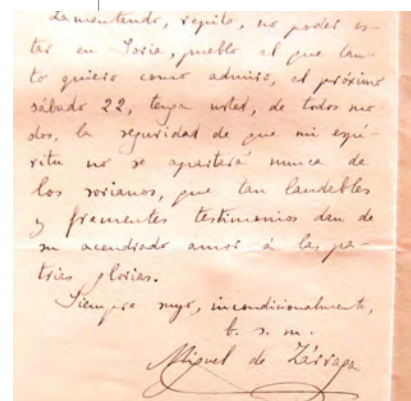 Lamentando, repito, no poder es-
tar en Soria, pueblo al que tan-
to quiero como admiro, el próximo
sábado 22, tenga usted, de todos mo
dos, la seguridad de que mi espí-
ritu no se apartará nunca de
los sorianos, que tan laudables
y frecuentes testimonios dan de
su acendrado amor á las pa-
trias glorias.
Siempre suyo, incondicionalmente,
b. s. m.
Miguel de Zárraga